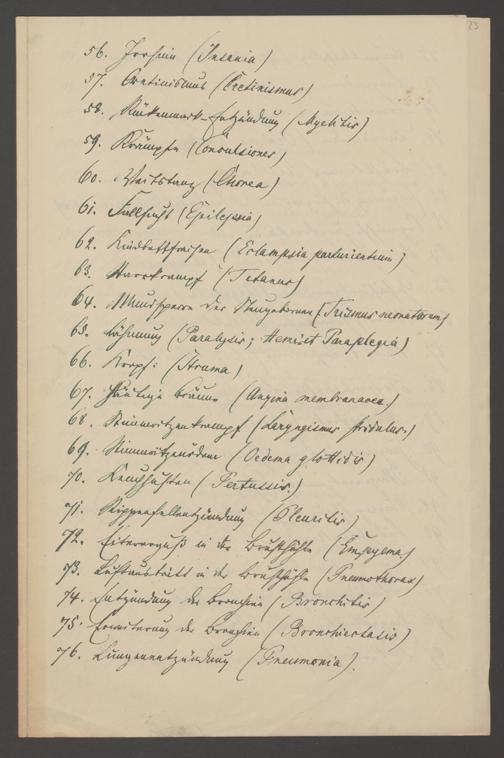 23
56. Irrsinn (Insania)
57. Cretinismus (Cretinismus)
58. Rückenmark-Entzündung (Myelitis)
59. Krämpfe (Convulsionen)
60. Veitstanz (Chorea)
61. Fallsucht (Epilepsia)
62. Kindbettfraisen (Eclampsia parturientium)
63. Starrkrampf (Tetanus)
64. Mundsperre der Neugeborenen (Trismus neonatorum)
65. Lähmung (Paralysis; Hemi et Paraplegia)
66. Kropf: (Struma)
67. Häutige Bräune (Angina membranacea)
68. Stimmritzenkrampf (Laryngismus stridulus.)
69. Stimmritzenödem (Oedema glottidis)
70. Keuchhusten (Pertussis.)
71. Rippenfellentzündung (Pleuritis)
72. Eitererguß in der Brusthöhle (Empyema)
73. Luftaustritt in die Brusthöhle (Pneumothorax)
74. Entzündung der Bronchien (Bronchitis)
75. Erweiterung der Bronchien (Bronchiectasis)
76. Lungenentzündung (Pneumonia).